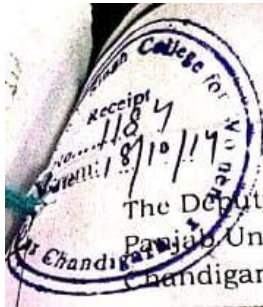 College for Women
Receipt
No.....1184
18/10/14
Chandigarh
The Deput
Panjab Un
Chandigar